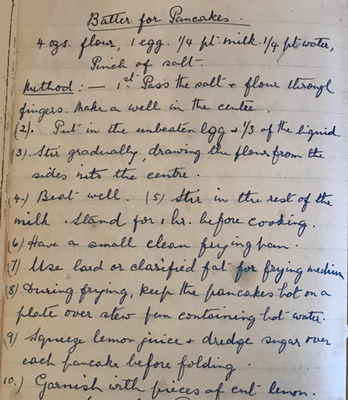 Batter for Pancakes.
4 ozs. flour, 1 egg. 1/4 pt. milk. 1/4 pt water,
Pinch of salt.
Method :— 1st Pass the salt + flour through
fingers. Make a well in the centre.
(2). Put in the unbeaten egg + 1/3 of the liquid.
(3). Stir gradually, drawing the flour from the
sides into the centre.
(4.) Beat well. (5) Stir in the rest of the
milk. Stand for 1 hr. before cooking.
(6) Have a small clean frying pan.
(7) Use lard or clarified fat for frying medium
(8) During frying, keep the pancakes hot on a
plate over stew pan containing hot water.
(9) Squeeze lemon juice + dredge sugar over
each pancake before folding.
10.) Garnish with pieces of cut lemon.